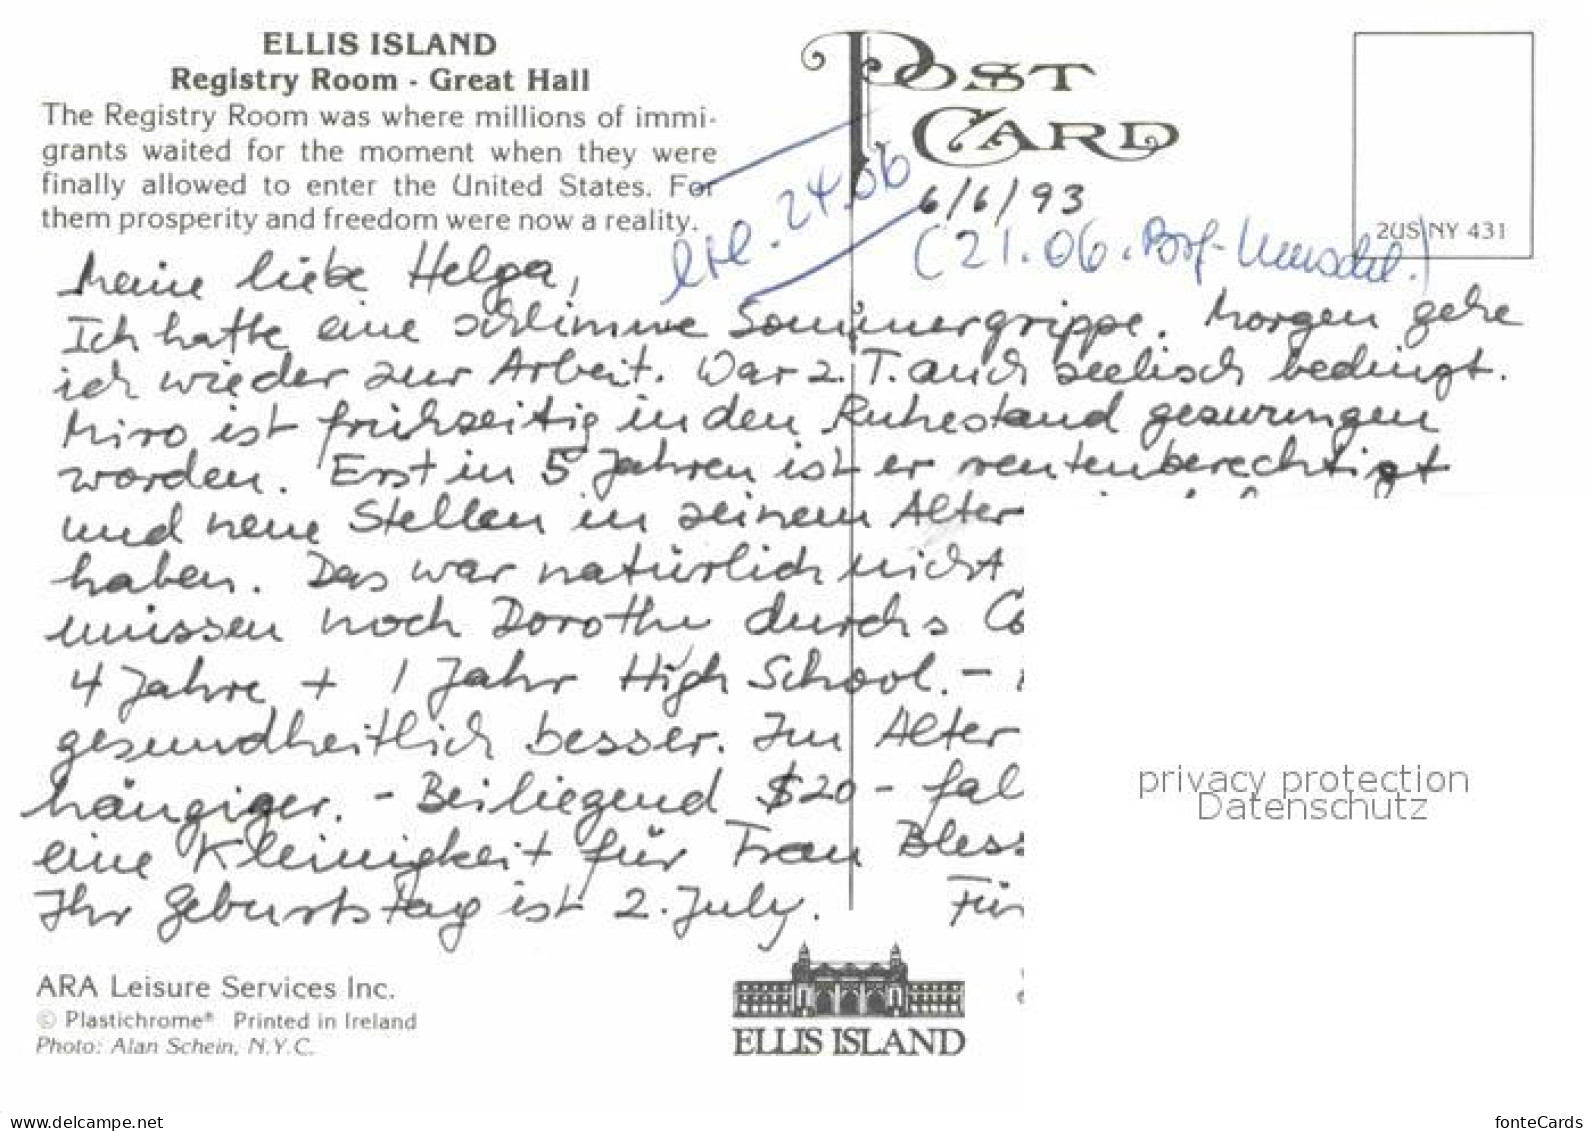 ELLIS ISLAND
Registry Room - Great Hall
The Registry Room was where millions of immi-
grants waited for the moment when they were
finally allowed to enter the United States. For
them prosperity and freedom were now a reality.
POST
CARD
2US NY 431
erl. 24.06
6/6/93
(21.06.
Meine liebe Helga,
Ich hatte eine schlimme Sommergrippe. Morgen gehe
ich wieder zur Arbeit. War z. T. auch seelisch bedingt.
Miro ist frühzeitig in den Ruhestand gezwungen
worden. Erst in 5 Jahren ist er rentenberechtigt
und neue Stellen in seinem Alter
haben. Das war natürlich nicht
müssen noch Dorothy durchs Co
4 Jahre + 1 Jahr High School. -
gesundheitlich besser. Im Alter
hängiger. - Beiliegend $20 - fal
eine Kleinigkeit für Frau Bless
Ihr Geburtstag ist 2. July. Für
privacy protection
Datenschutz
ARA Leisure Services Inc.
© Plastichrome® Printed in Ireland
Photo: Alan Schein, N.Y.C.
ELLIS ISLAND
www.delcampe.net
fonteCards